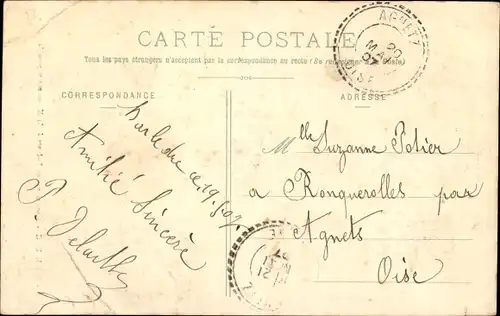 CARTE POSTALE
Tous les pays étrangers n'acceptent pas la correspondance au recto (Se renseigner à la Poste)
CORRESPONDANCE
ADRESSE
AGNETZ
20
MAI
07
OISE
Bar le duc ce 19.5.07
Amitié Sincère
Mlle Suzanne Potier
a Ronquerolles par
Agnets
Oise